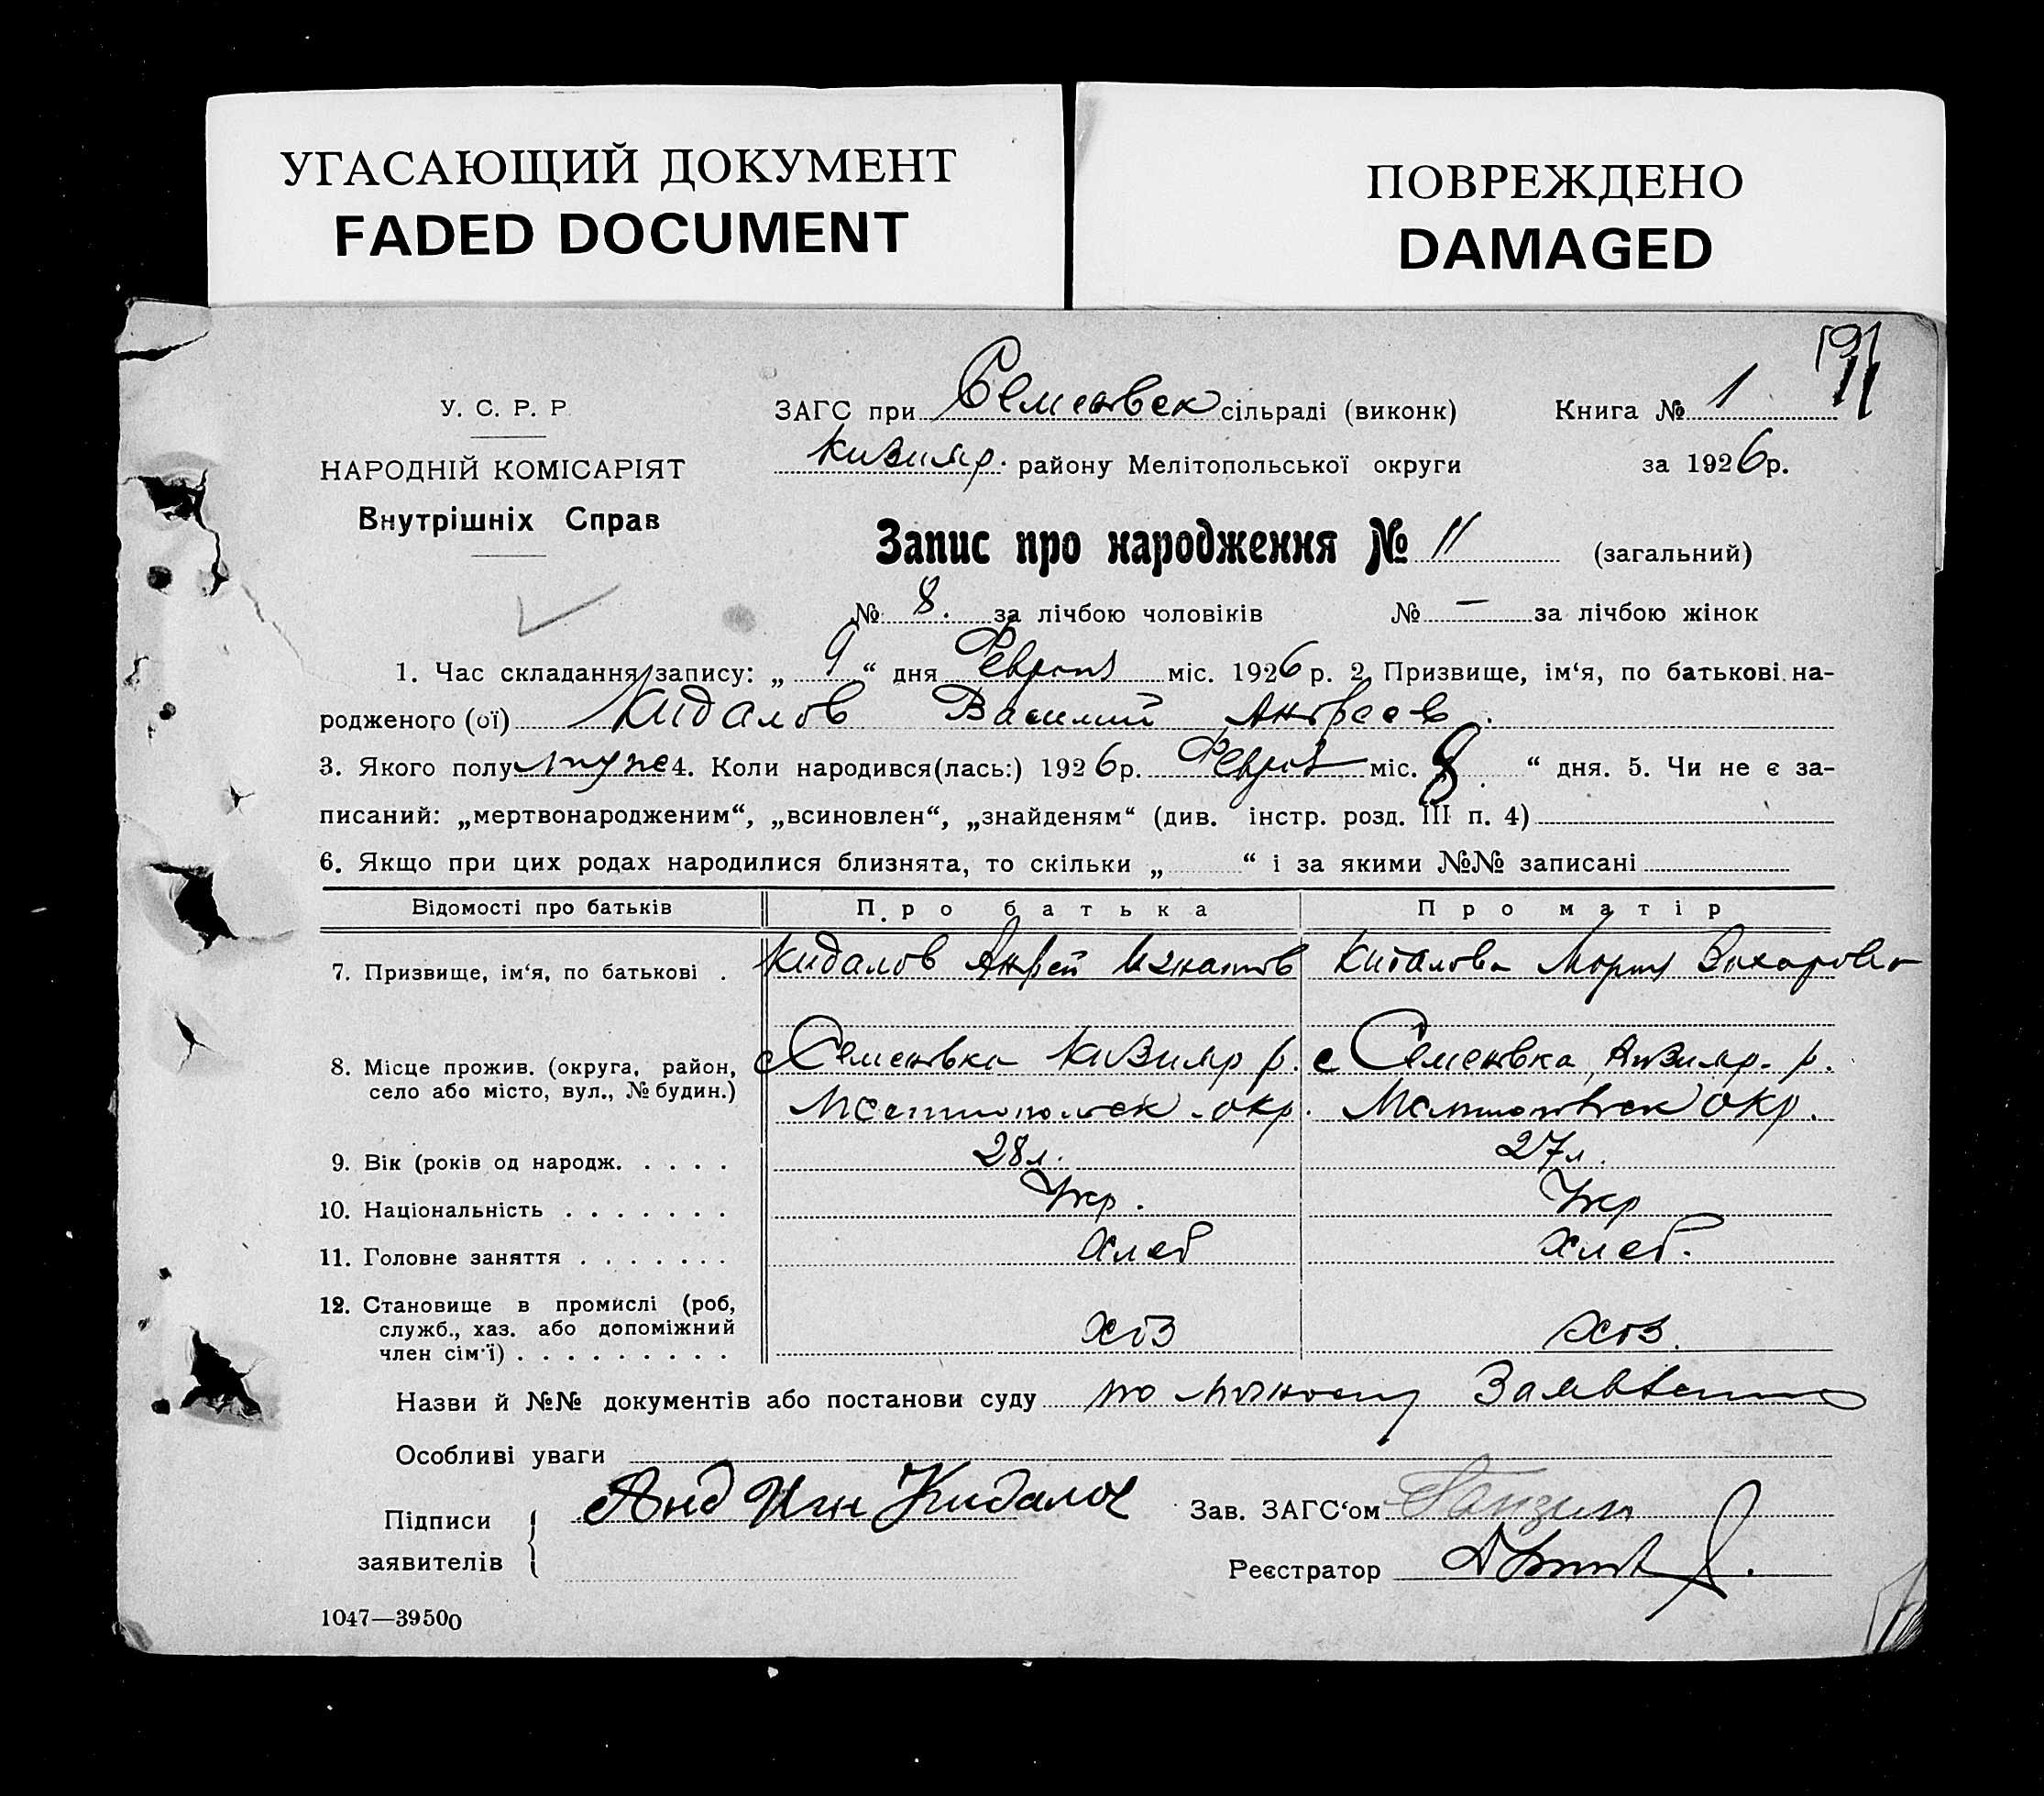 УГАСАЮЩИЙ ДОКУМЕНТ
FADED DOCUMENT
ПОВРЕЖДЕНО
DAMAGED
У. С. Р. Р
НАРОДНІЙ КОМІСАРІЯТ
Внутрішніх Справ
ЗАГС при Семеновск сільраді (виконк) Книга № 1
Кизияр. району Мелітопольської округи за 1926р.
Запис про народження № 11 (загальний)
№ 8. за лічбою чоловіків № — за лічбою жінок
1. Час складання запису: „ 9 “ дня Февраля міс. 1926 р. 2. Призвище, ім‘я, по батькові на-
родженого (ої) Кидалов Василий Андреев.
3. Якого полу муж 4. Коли народився(лась:) 1926р. Февраля міс. 8 “ дня. 5. Чи не є за-
писаний: „мертвонародженим“, „всиновлен“, „знайденям“ (див. інстр. розд. III п. 4)
6. Якщо при цих родах народилися близнята, то скільки „ “ і за якими №№ записані
Відомості про батьків Про батька Про матір
7. Призвище, ім‘я, по батькові . Кидалов Андрей Игнатов Кидалова Мария Захарова
8. Місце прожив. (округа, район, с Семеновка Кизияр р. с Семеновка, Кизияр. р.
село або місто, вул., № будин.) Мелитопольск. окр. Мелитопольск окр.
9. Вік (років од народж. . . . . 28 л. 27 л.
10. Національність . . . . . . . Укр. Укр
11. Головне заняття . . . . . . . Хлеб Хлеб.
12. Становище в промислі (роб,
служб., хаз. або допоміжний Хоз Хоз.
член сім‘ї) . . . . . . . . .
Назви й №№ документів або постанови суду по личному Заявлению
Особливі уваги
Підписи
заявителів
Анд Игн Кидалов
Зав. ЗАГС‘ом
Реєстратор
1047—39500